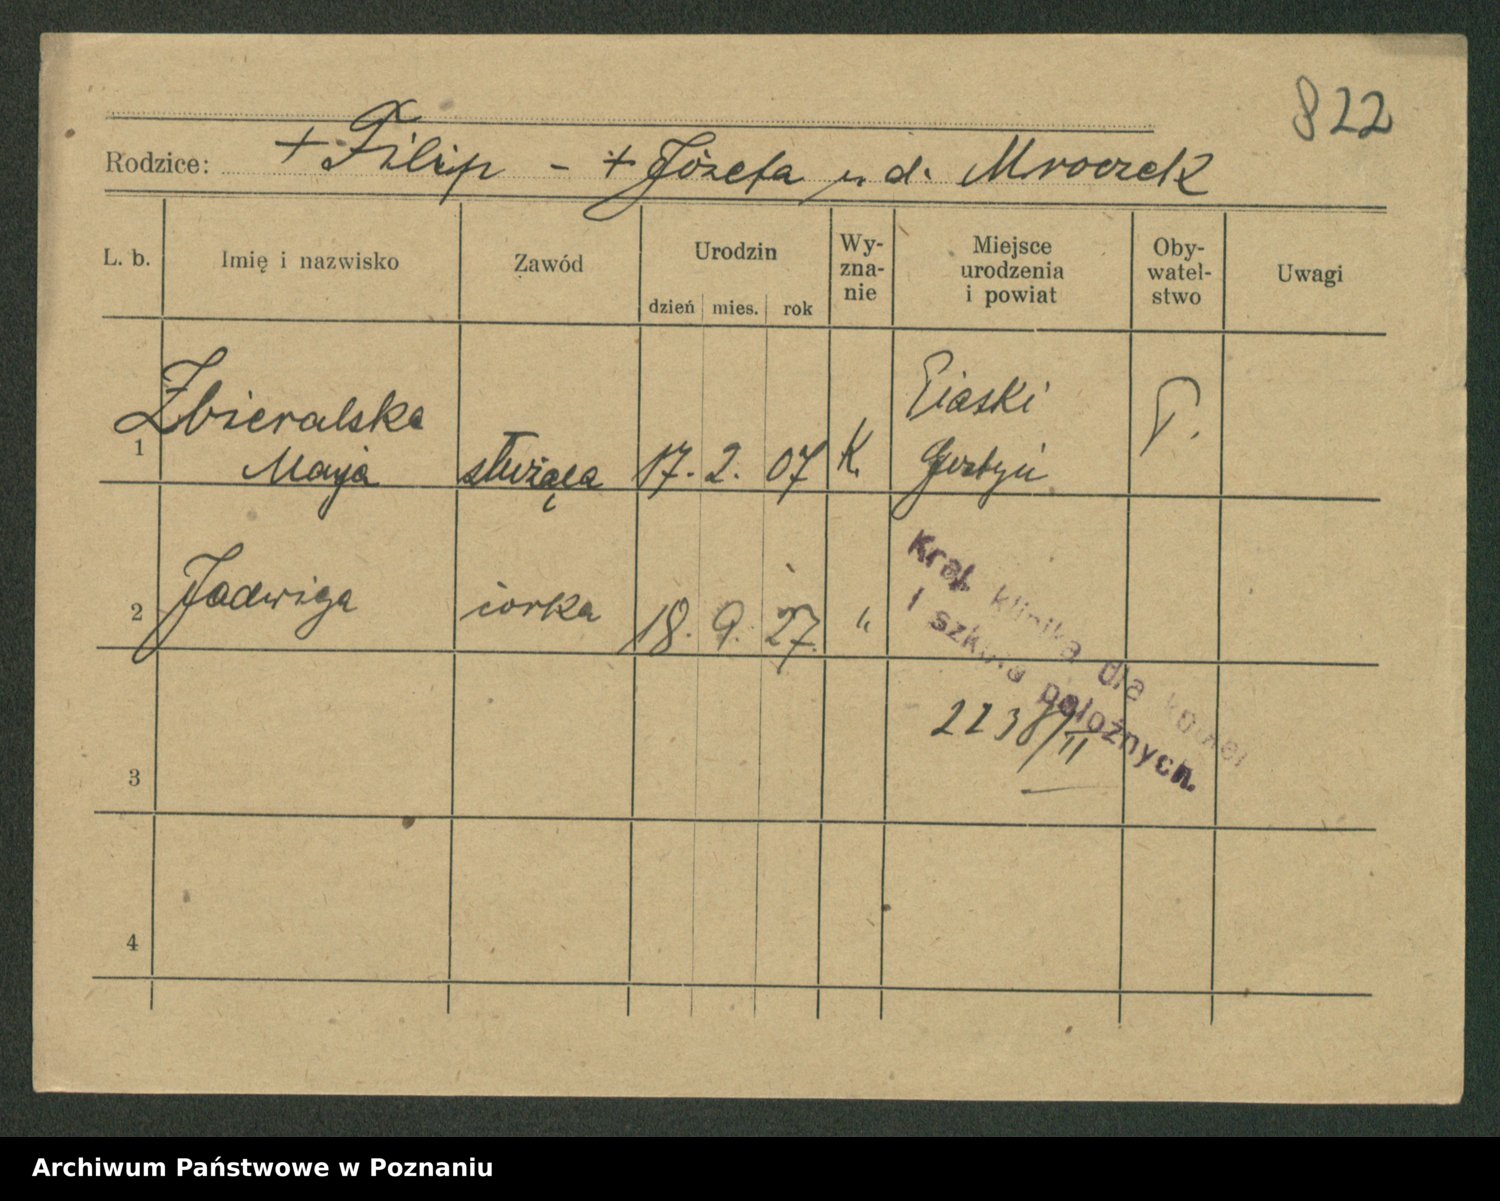 822
Rodzice: + Filip - + Józefa u. d. Mroczek
L. b. Imię i nazwisko Zawód Urodzin dzień mies. rok Wy-zna-nie Miejsce urodzenia i powiat Oby-watel-stwo Uwagi
Zbieralska Piaski P.
1 Marja służąca 17. 2. 07 K. Gostyń
2 Jadwiga córka 18. 9. 27. "
Kraj. klinika dla kobiet
i szkoła położnych.
2238/II
3
4
Archiwum Państwowe w Poznaniu